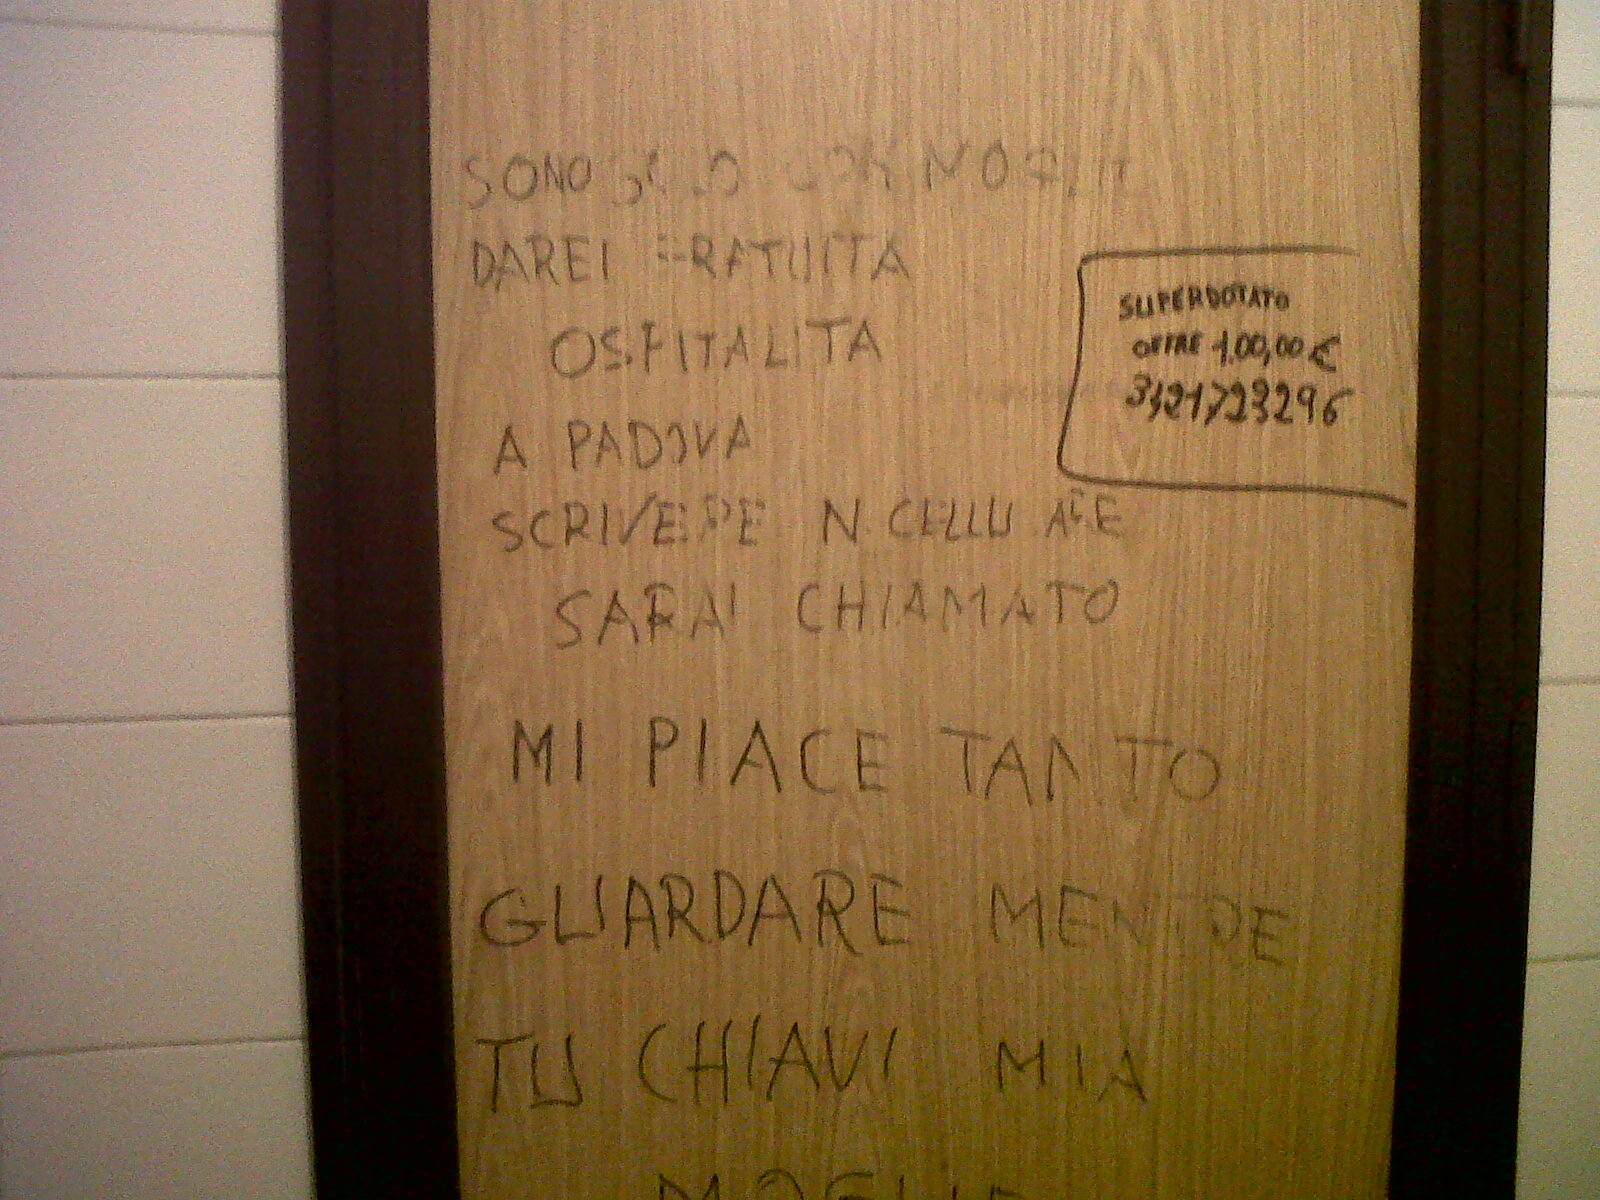 SONO SOLO CON MOGLIE
DAREI GRATUITA
OSPITALITA
A PADOVA
SCRIVERE N. CELLULARE
SARAI CHIAMATO
MI PIACE TANTO
GUARDARE MENTRE
TU CHIAVI MIA
MOGLIE
SUPERDOTATO
OFFRE 100,00 €
3421723296